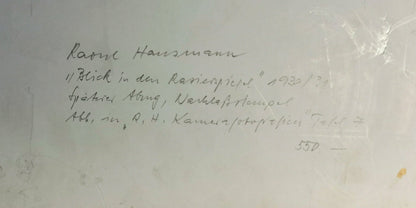 Raoul Hausmann
"Blick in den Rasierspiegel" 1930/31
Späterer Abzug, Nachlaßstempel
Abb. in „R. H. Kamerafotografien Tafel 7
550 —